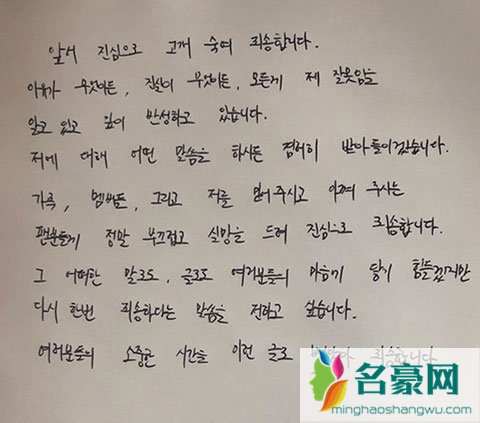 앞서 진심으로 고개 숙여 죄송합니다.
이유가 무엇이든, 진실이 무엇이든, 모든게 제 잘못임을
알고 있고 깊이 반성하고 있습니다.
저에 대해 어떤 말씀을 하시든 겸허히 받아들이겠습니다.
가족, 멤버들, 그리고 저를 믿어주시고 아껴 주시는
팬분들게 정말 부끄럽고 실망을 드려 진심으로 죄송합니다.
그 어떠한 말로도, 글로도 여러분들의 마음에 닿기 힘들겠지만
다시 한번 죄송하다는 말씀을 전하고 싶습니다.
여러분들의 소중한 시간을 이런 글로 죄송합니다
名豪网
minghaoshangwu.com